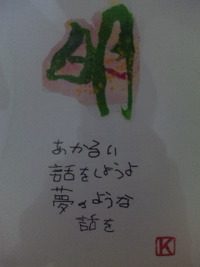 明
あかるい
話をしようよ
夢のような
話を
K